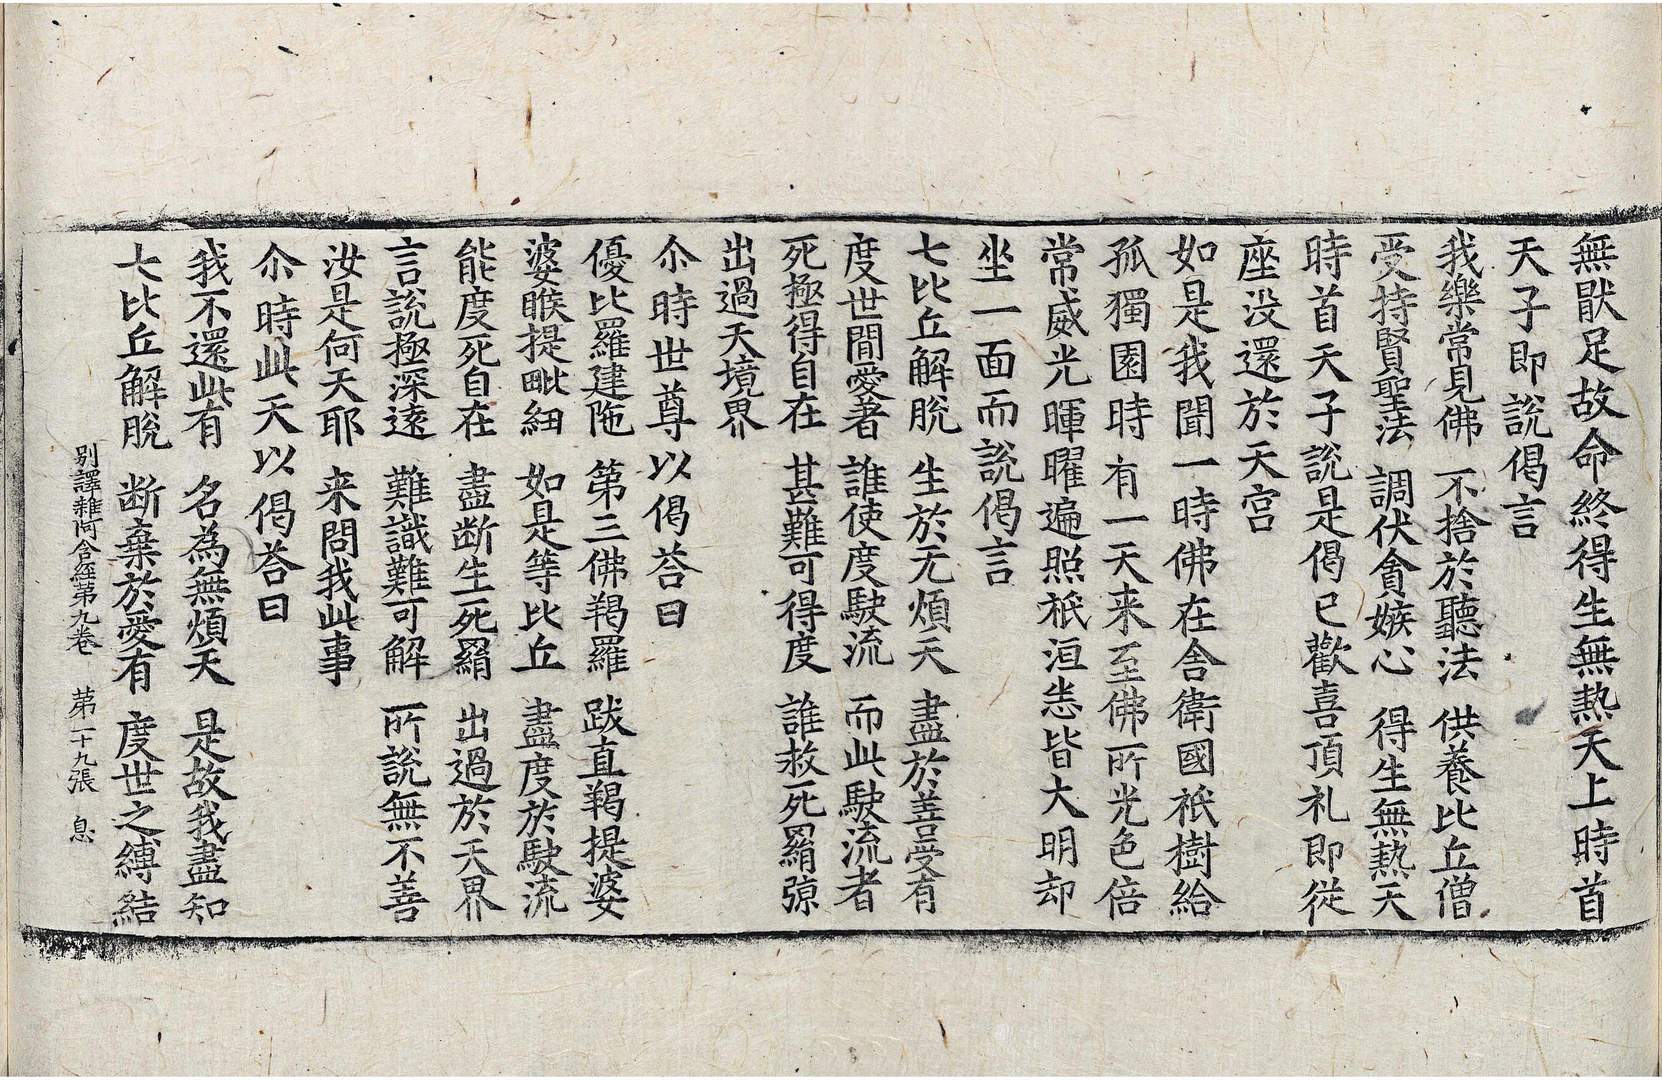 無猒足故命終得生無熱天上時首
天子即說偈言
我樂常見佛　不捨於聽法　供養比丘僧
受持賢聖法　調伏貪嫉心　得生無熱天
時首天子說是偈已歡喜頂礼即從
座没還於天宮
如是我聞一時佛在舍衛國祇樹給
孤獨園時有一天来至佛所光色倍
常威光暉曜遍照祇洹悉皆大明却
坐一面而說偈言
七比丘解脫　生於无煩天　盡於善受有
度世閒愛著　誰使度駛流　而此駛流者
死極得自在　甚難可得度　誰救死羂弶
出過天境界
尒時世尊以偈荅曰
優比羅建陁　第三佛羯羅　跋直羯提婆
婆睺提毗紐　如是等比丘　盡度於駛流
能度死自在　盡断生死羂　出過於天界
言說極深遠　難識難可解　所說無不善
汝是何天耶　来問我此事
尒時此天以偈荅曰
我不還此有　名為無煩天　是故我盡知
七比丘解脫　断棄於愛有　度世之縛結
別譯雜阿含經第九卷　第二十九張　息